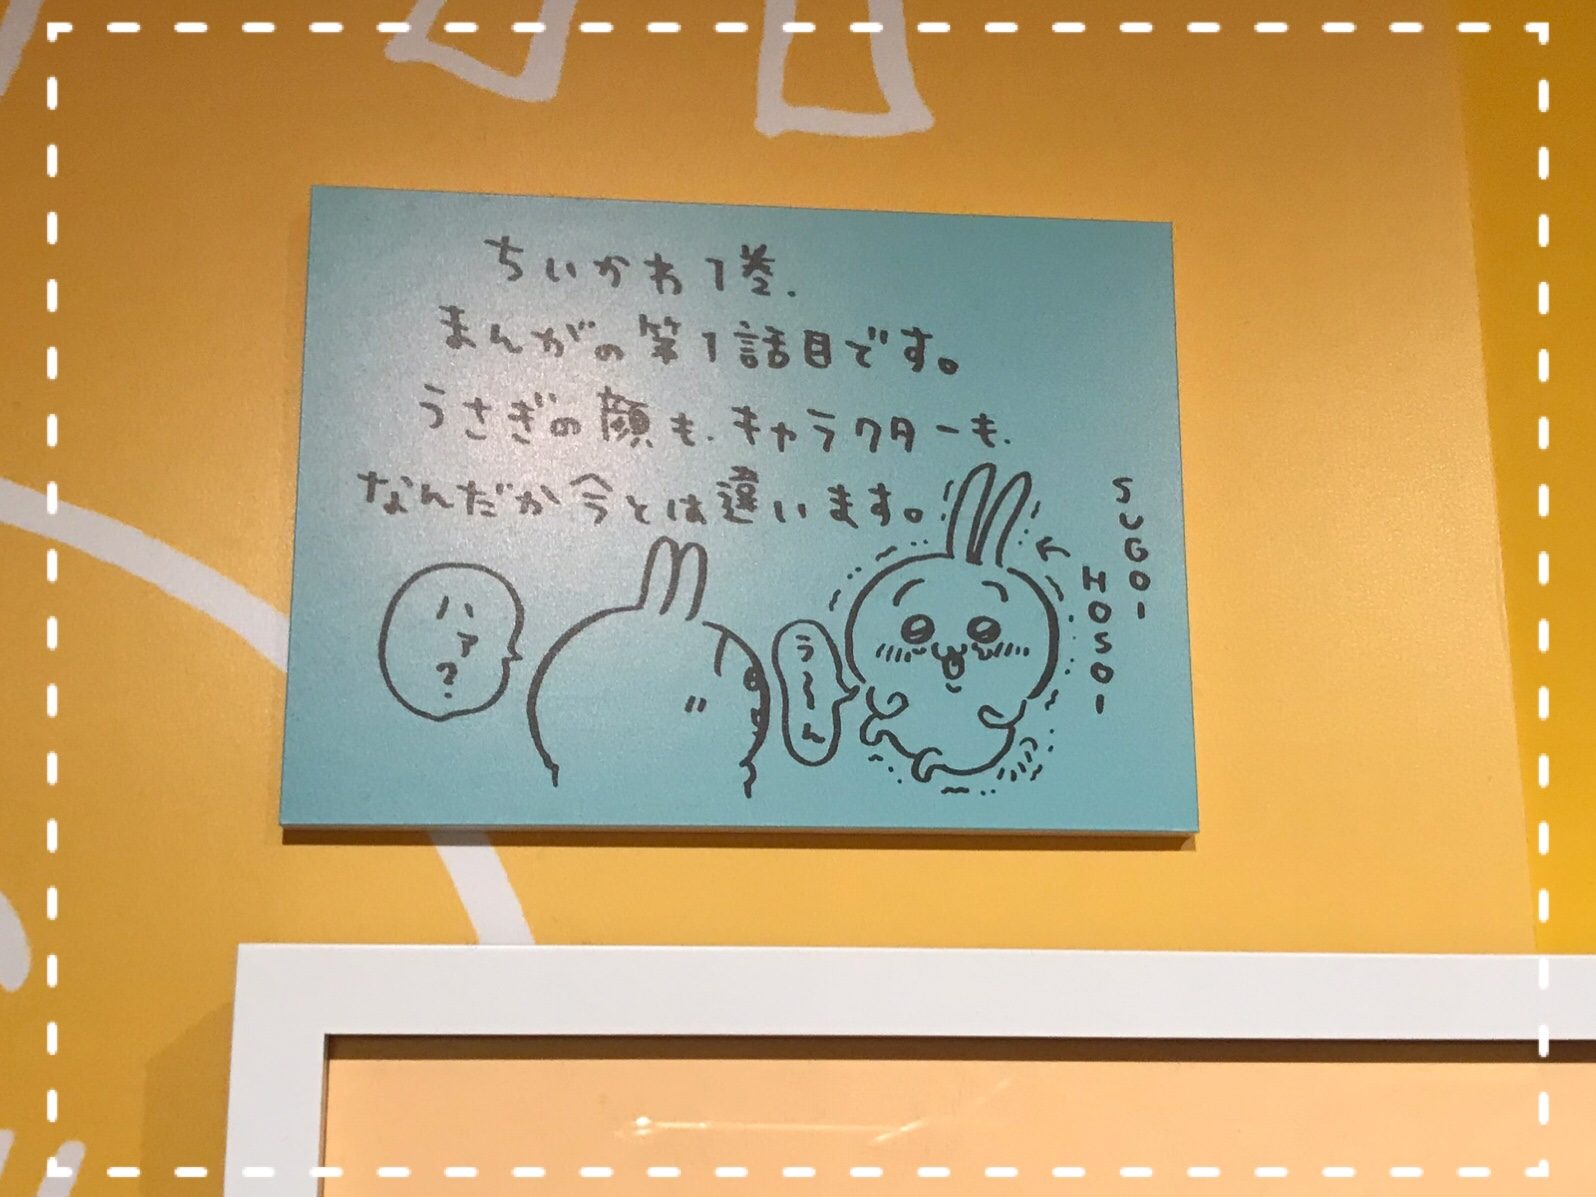 ちいかわ1巻.
まんがの第1話目です。
うさぎの顔も.キャラクターも.
なんだか今とは違います。
ハァ?
うーん
SUGOI
HOSOI